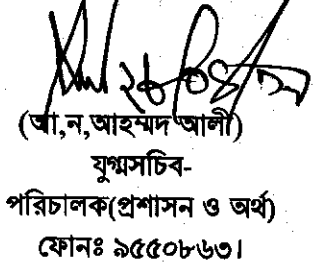 (আ,ন,আহম্মদ আলী)
যুগ্মসচিব-
পরিচালক(প্রশাসন ও অর্থ)
ফোনঃ ৯৫৫০৮৬৩।